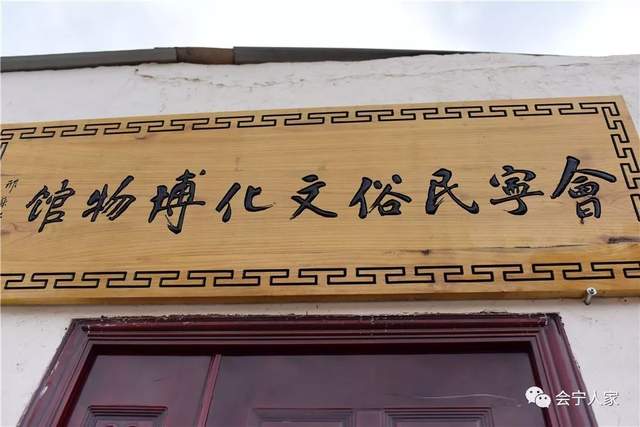 會寧民俗文化博物馆
会宁人家